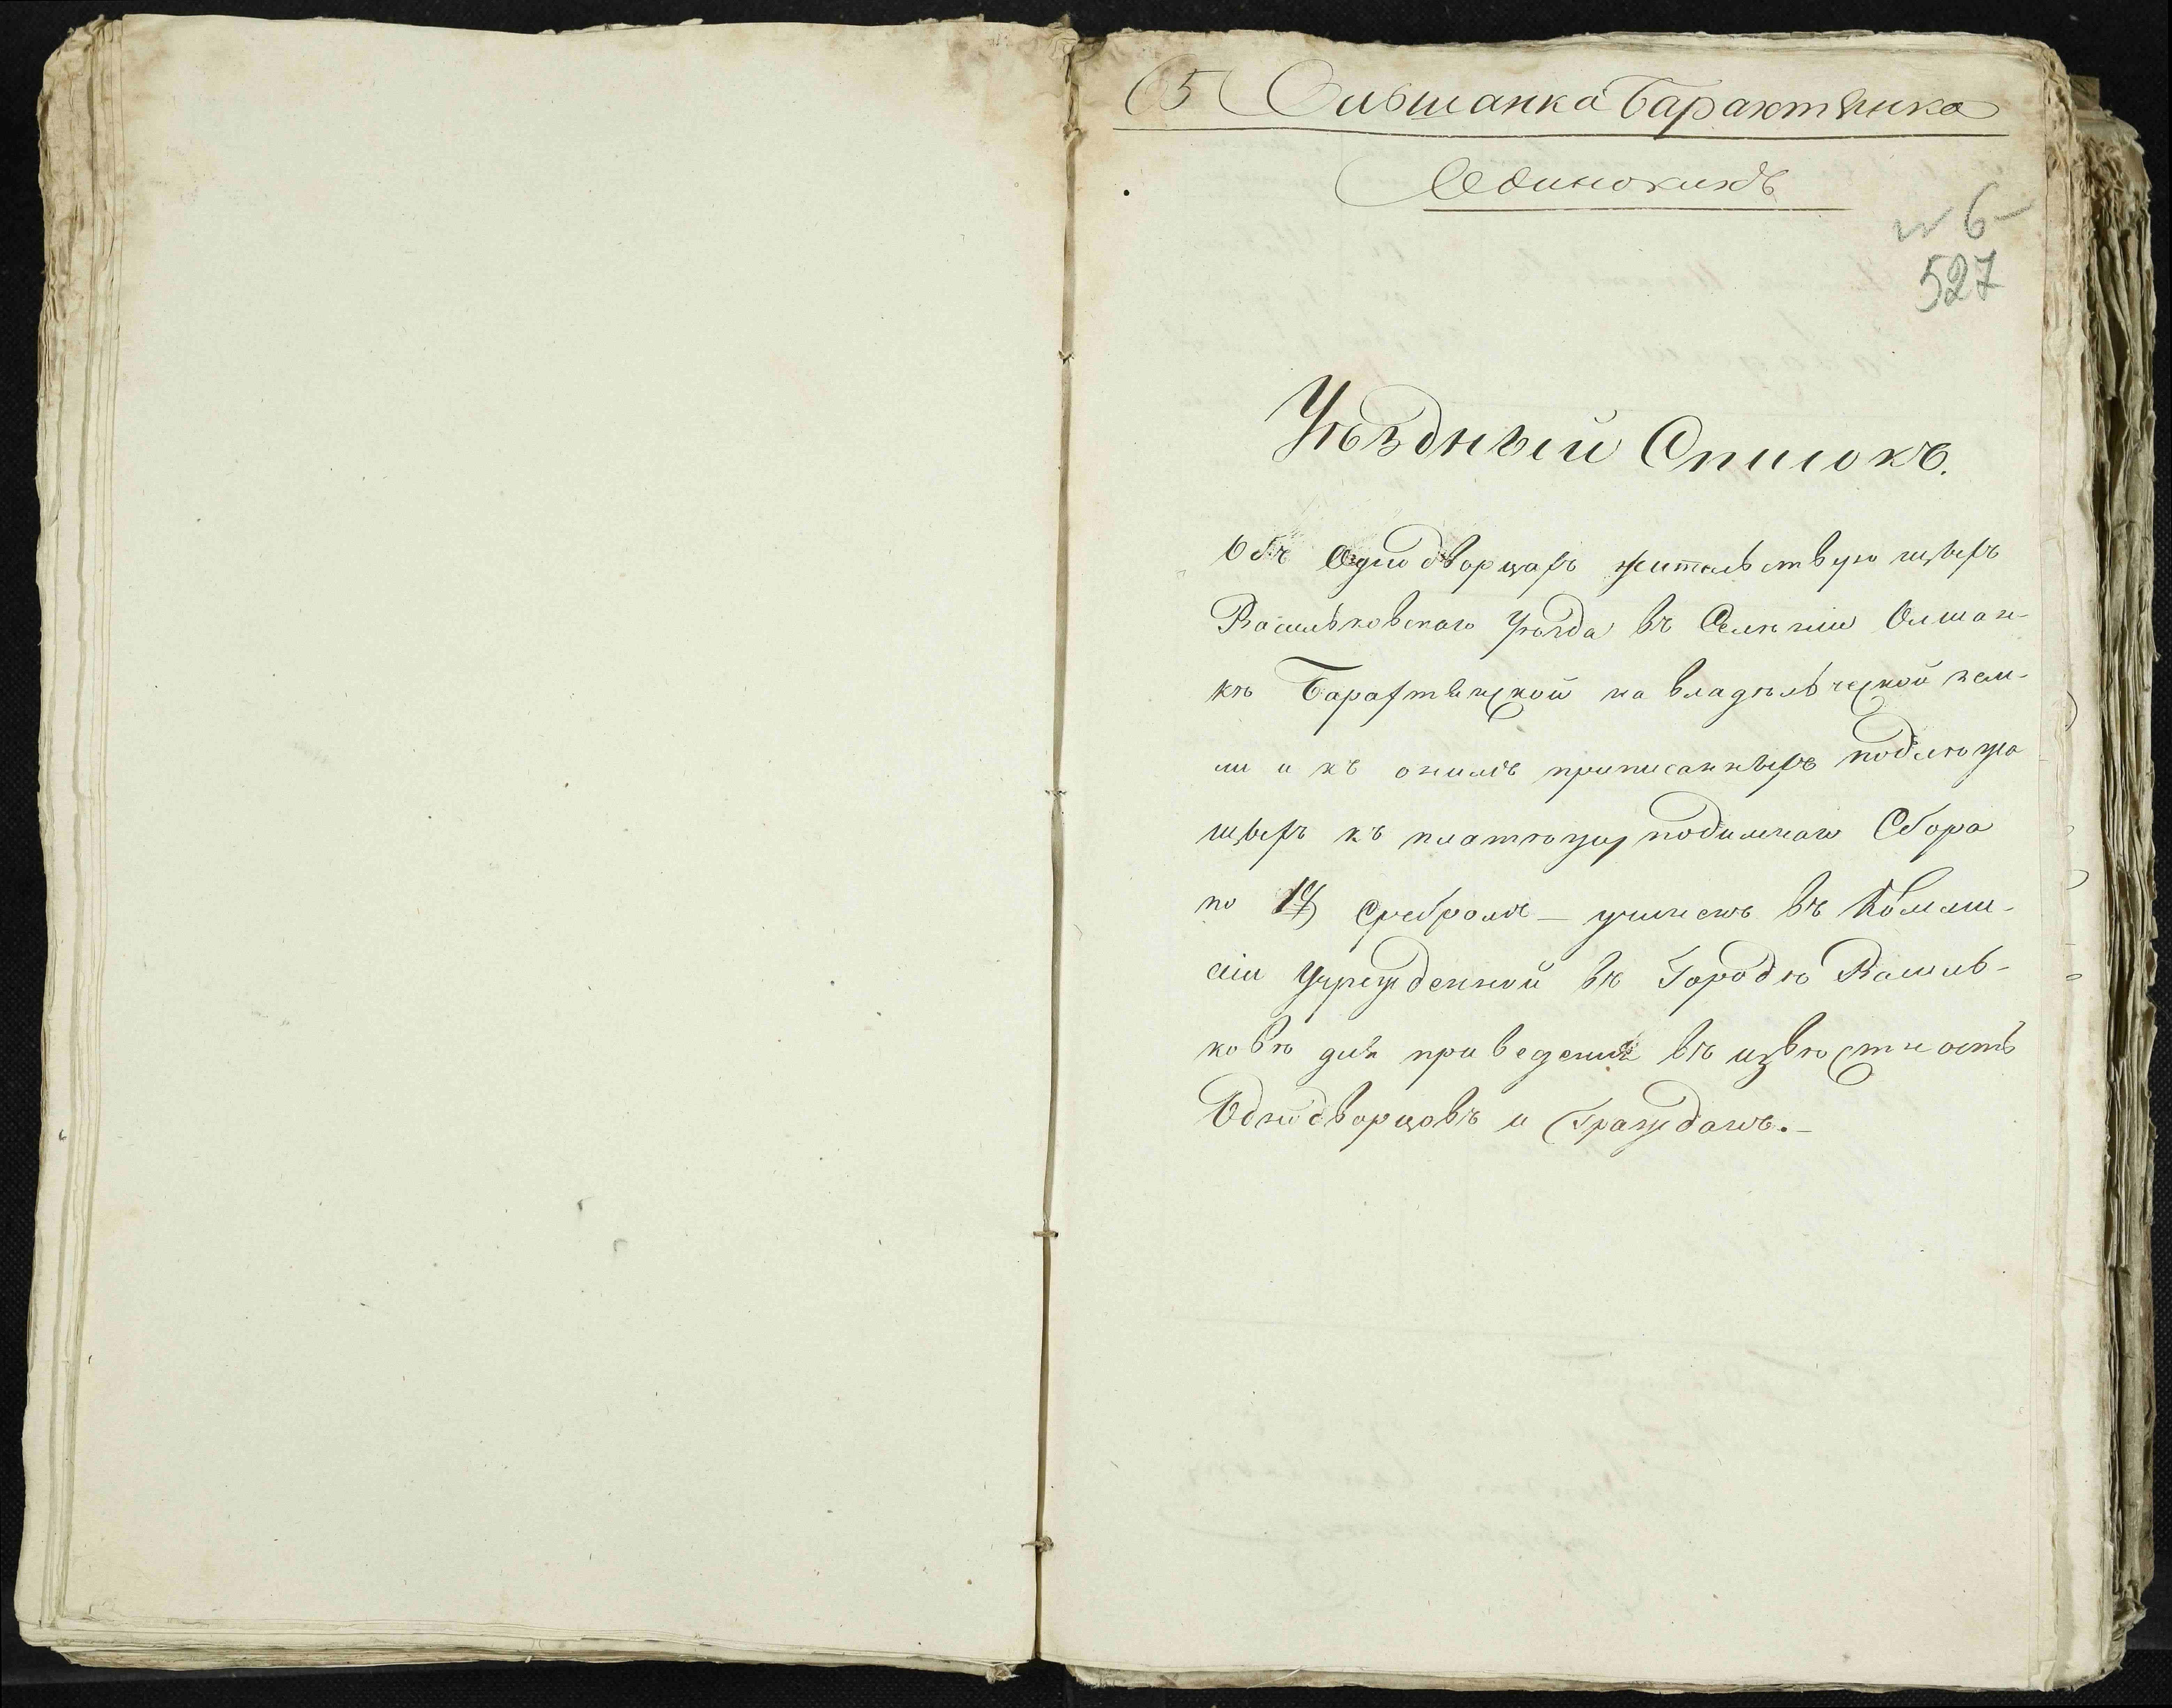 5 Ольшанка Барахтянка
Одинокихъ
№ 6
527
Уѣздный Списокъ.
Объ Однодворцахъ жительствующихъ
Васильковскаго Уѣзда въ Селеніи Олшан-
кѣ Барахтянской на владѣльческой зем-
ли и къ онымъ приписанныхъ подлежа
щихъ къ платежу подымнаго Сбора
по сребромъ – учиненъ въ Коммы-
сіи Учрежденной въ Городѣ Василь-
ковѣ для приведенія въ извѣстность
Однодворцовъ и Гражданъ.–